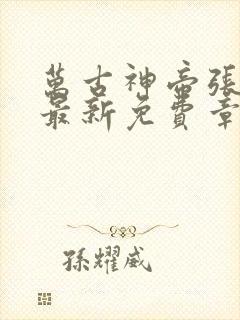 萬古神帝張
最新免費章
孫耀威